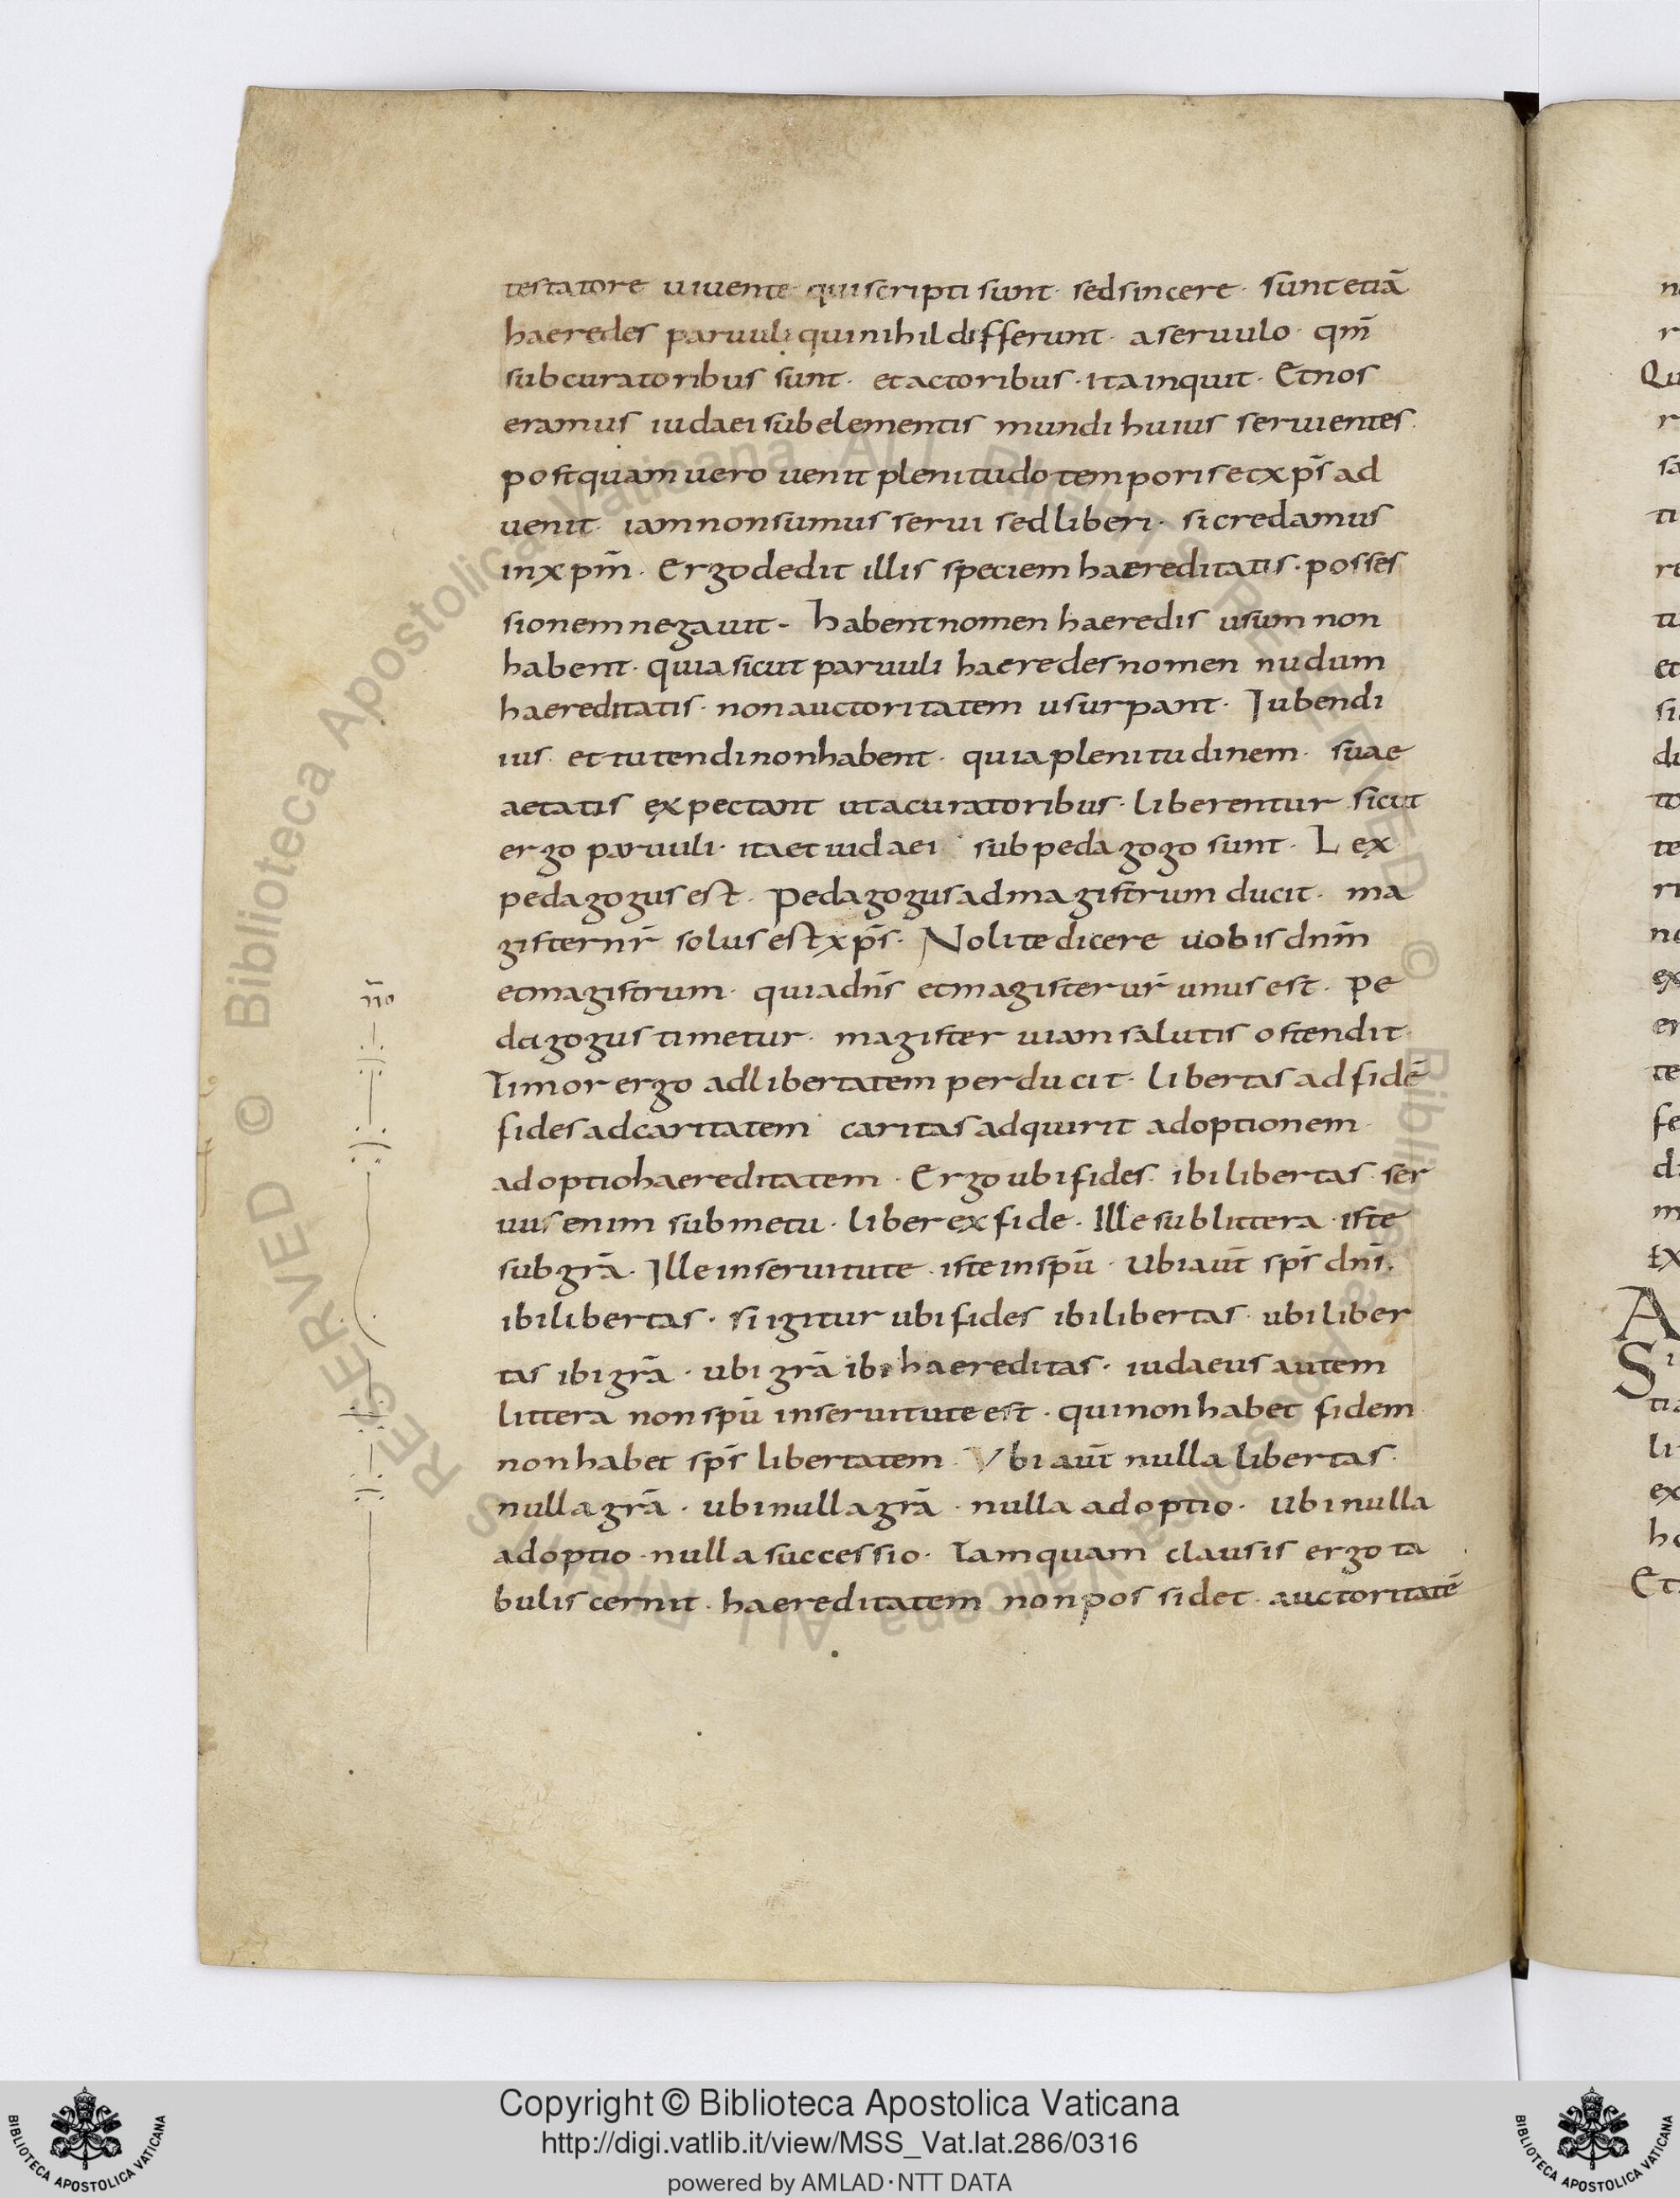 testatore uiuente qui scripti sunt · sed sincere · sunt etiā
haeredes paruuli qui nihil differunt · a seruulo · qm̄
sub curatoribus sunt · et actoribus · ita inquit · Et nos
eramus iudaei sub elementis mundi huius seruientes ·
postquam uero uenit plenitudo temporis et xp̄s ad
uenit · iam non sumus serui sed liberi · si credamus
in xpm̄ · Ergo dedit illis speciem haereditatis · posses
sionem negauit · habent nomen haeredis usum non
habent · quia sicut paruuli haeredes nomen nudum
haereditatis · non auctoritatem usurpant · Iubendi
ius · et tutendi non habent · quia plenitudinem · suae
aetatis expectant ut a curatoribus · liberentur sicut
ergo paruuli · ita et iudaei · sub pedagogo sunt · Lex
pedagogus est · Pedagogus ad magistrum ducit · ma
gister nr̄ solus est xp̄s · Nolite dicere uobis dnm̄
et magistrum · quia dn̄s et magister ur̄ unus est · pe
dagogus timetur · magister uiam salutis ostendit ·
Timor ergo ad libertatem perducit · libertas ad fidē
fides ad caritatem · caritas adquirit adoptionem ·
adoptio haereditatem · Ergo ubi fides · ibi libertas · ser
uus enim sub metu · liber ex fide · Ille sub littera · iste
sub grā · Ille in seruitute · iste in spū · Ubi aut̄ sps̄ dnī ·
ibi libertas · si igitur ubi fides ibi libertas · ubi liber
tas ibi grā · ubi grā ibi haereditas · iudaeus autem
littera non spū in seruitute est · qui non habet fidem
non habet sps̄ libertatem · Vbi aut̄ nulla libertas ·
nulla grā · ubi nulla grā · nulla adoptio · Ubi nulla
adoptio · nulla successio · Tamquam clausis ergo ta
bulis cernit · haereditatem non possidet · auctoritatē
Copyright © Biblioteca Apostolica Vaticana
http://digi.vatlib.it/view/MSS_Vat.lat.286/0316
powered by AMLAD·NTT DATA
BIBLIOTECA APOSTOLICA VATICANA
BIBLIOTECA APOSTOLICA VATICANA